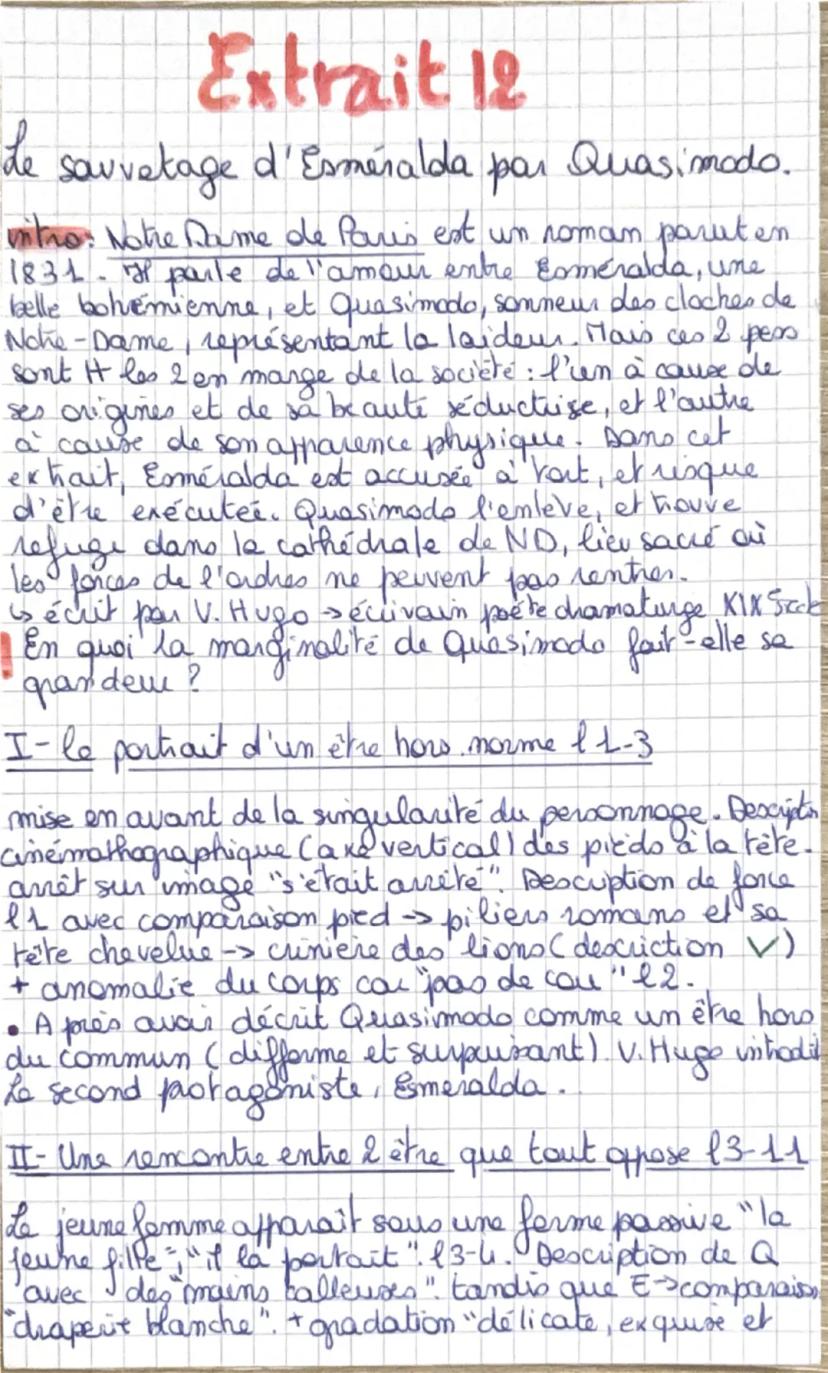 Extrait 12
Le sauvetage d'Esméralda par Quasimodo.
intro: Notre Dame de Paris est un roman parut en
1831. Il parle de l'amour entre Esméralda, une
belle bohémienne, et Quasimodo, sonneur des cloches de
Notre-Dame, représentant la laideur. Mais ces 2 perso
sont tt les 2 en marge de la société : l'un à cause de
ses origines et de sa beauté séductrise, et l'autre
à cause de son apparence physique. Dans cet
extrait, Esméralda est accusée à tort, et risque
d'être exécutée. Quasimodo l'enlève, et trouve
refuge dans la cathédrale de ND, lieu sacré où
les forces de l'ordres ne peuvent pas rentrer.
↳ écrit par V. Hugo → écrivain poète dramaturge XIX
En quoi la marginalité de Quasimodo fait-elle sa
grandeur ?
I- le portrait d'un être hors norme l 1-3
mise en avant de la singularité du personnage. Descriptn
cinémathographique (axe vertical) des pieds à la tête.
arrêt sur image "s'était arrêté". Description de force
l1 avec comparaison pied → piliers romans et sa
tête chevelue → crinière des lions (descriction ✓)
+ anomalie du corps car "pas de cou" l2.
• Après avoir décrit Quasimodo comme un être hors
du commun (difforme et surpuissant). V. Hugo introduit
le second protagoniste, Esmeralda.
II- Une rencontre entre 2 être que tout oppose l3-11
La jeune femme apparaît sous une forme passive "la
jeune fille"; "il la portait". l3-4. Description de Q
avec des "mains calleuses". tandis que E → comparaison
"draperie blanche". + gradation "délicate, exquise et